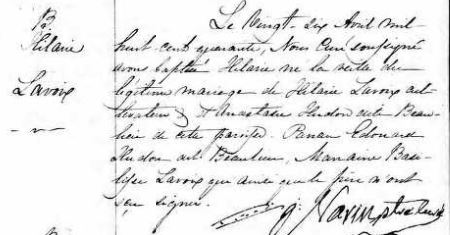 B.
Hilaire
Lavoix
Le Vingt-six Avril mil
huit cent quarante, Nous Curé soussigné
avons baptisé Hilaire né la veille du
légitime mariage de Hilaire Lavoix cul
tivateur & d'Anastasie Hudon dite Beau
lieu de cette paroisse. Parrain Edouard
Hudon dit Beaulieu, Marraine Basi
lisse Lavoix qui ainsi que le père n'ont
su signer.